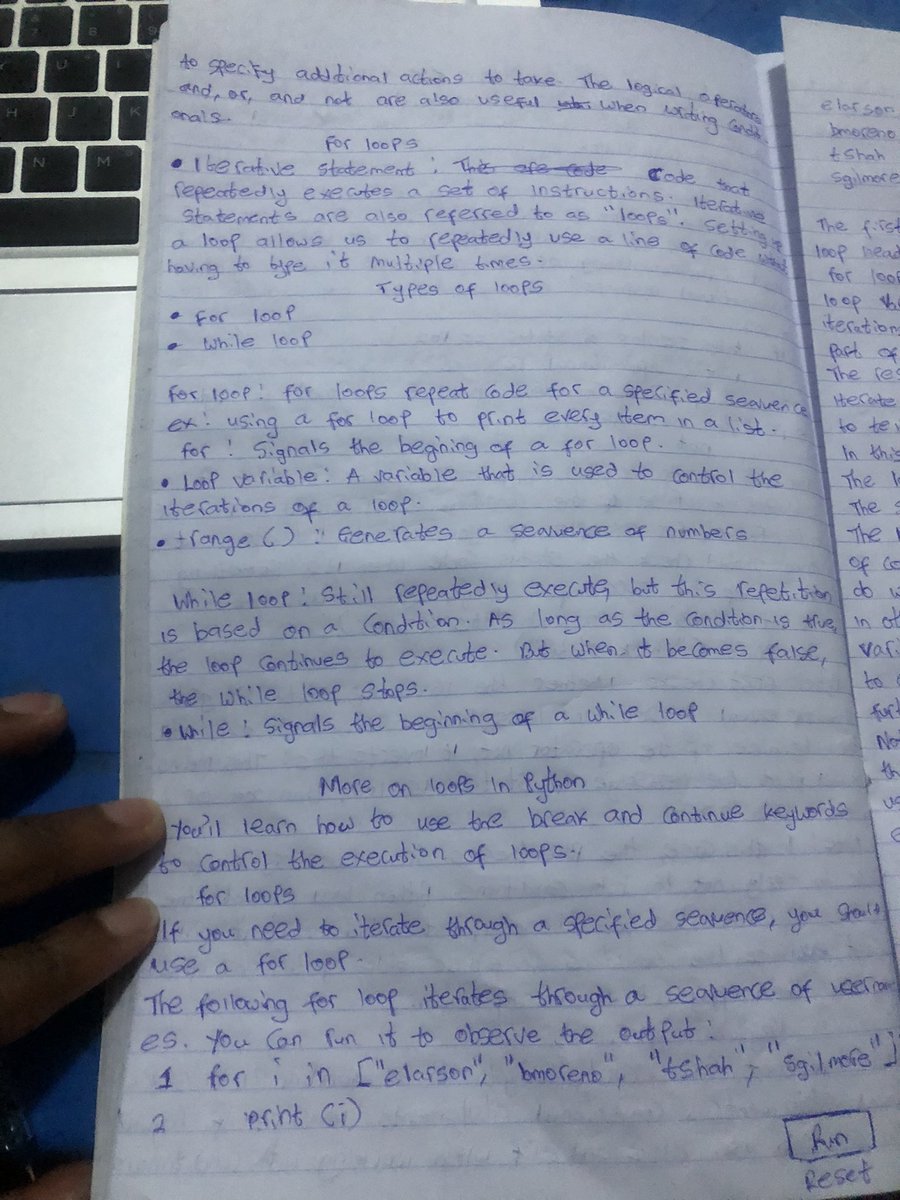 to specify additional actions to take. The logical operators
and, or, and not are also useful when writing condit
onals.
For loops
• Iterative statement : This are code Code that
repeatedly executes a set of instructions. Iterative
statements are also referred to as "loops". Setting
a loop allows us to repeatedly use a line of code
having to type it multiple times.
Types of loops
• for loop
• While loop
For loop: for loops repeat code for a specified sequence
ex: using a for loop to print every item in a list.
for: Signals the begining of a for loop.
• Loop variable: A variable that is used to control the
iterations of a loop.
• range () : Generates a sequence of numbers
While loop: Still repeatedly execute, but this repetition
is based on a condition. As long as the condition is true,
the loop continues to execute. But when it becomes false,
the while loop stops.
• While: Signals the beginning of a while loop
More on loops in Python
You'll learn how to use the break and continue keywords
to control the execution of loops.
for loops
If you need to iterate through a specified sequence, you should
use a for loop.
The following for loop iterates through a sequence of usernam
es. You can run it to observe the output:
1 for i in ["elarson", "bmoreno", "tshah", "sgilmore"]
2 print (i)
Run
Reset
elarson
bmoreno
tshah
sgilmore
The first
loop head
for loop
loop va
iteration
part of
The res
iterate
to te
In this
The l
The s
The
of co
do w
in ot
vari
to
furt
No
th
U
I
H
J
K
N
M